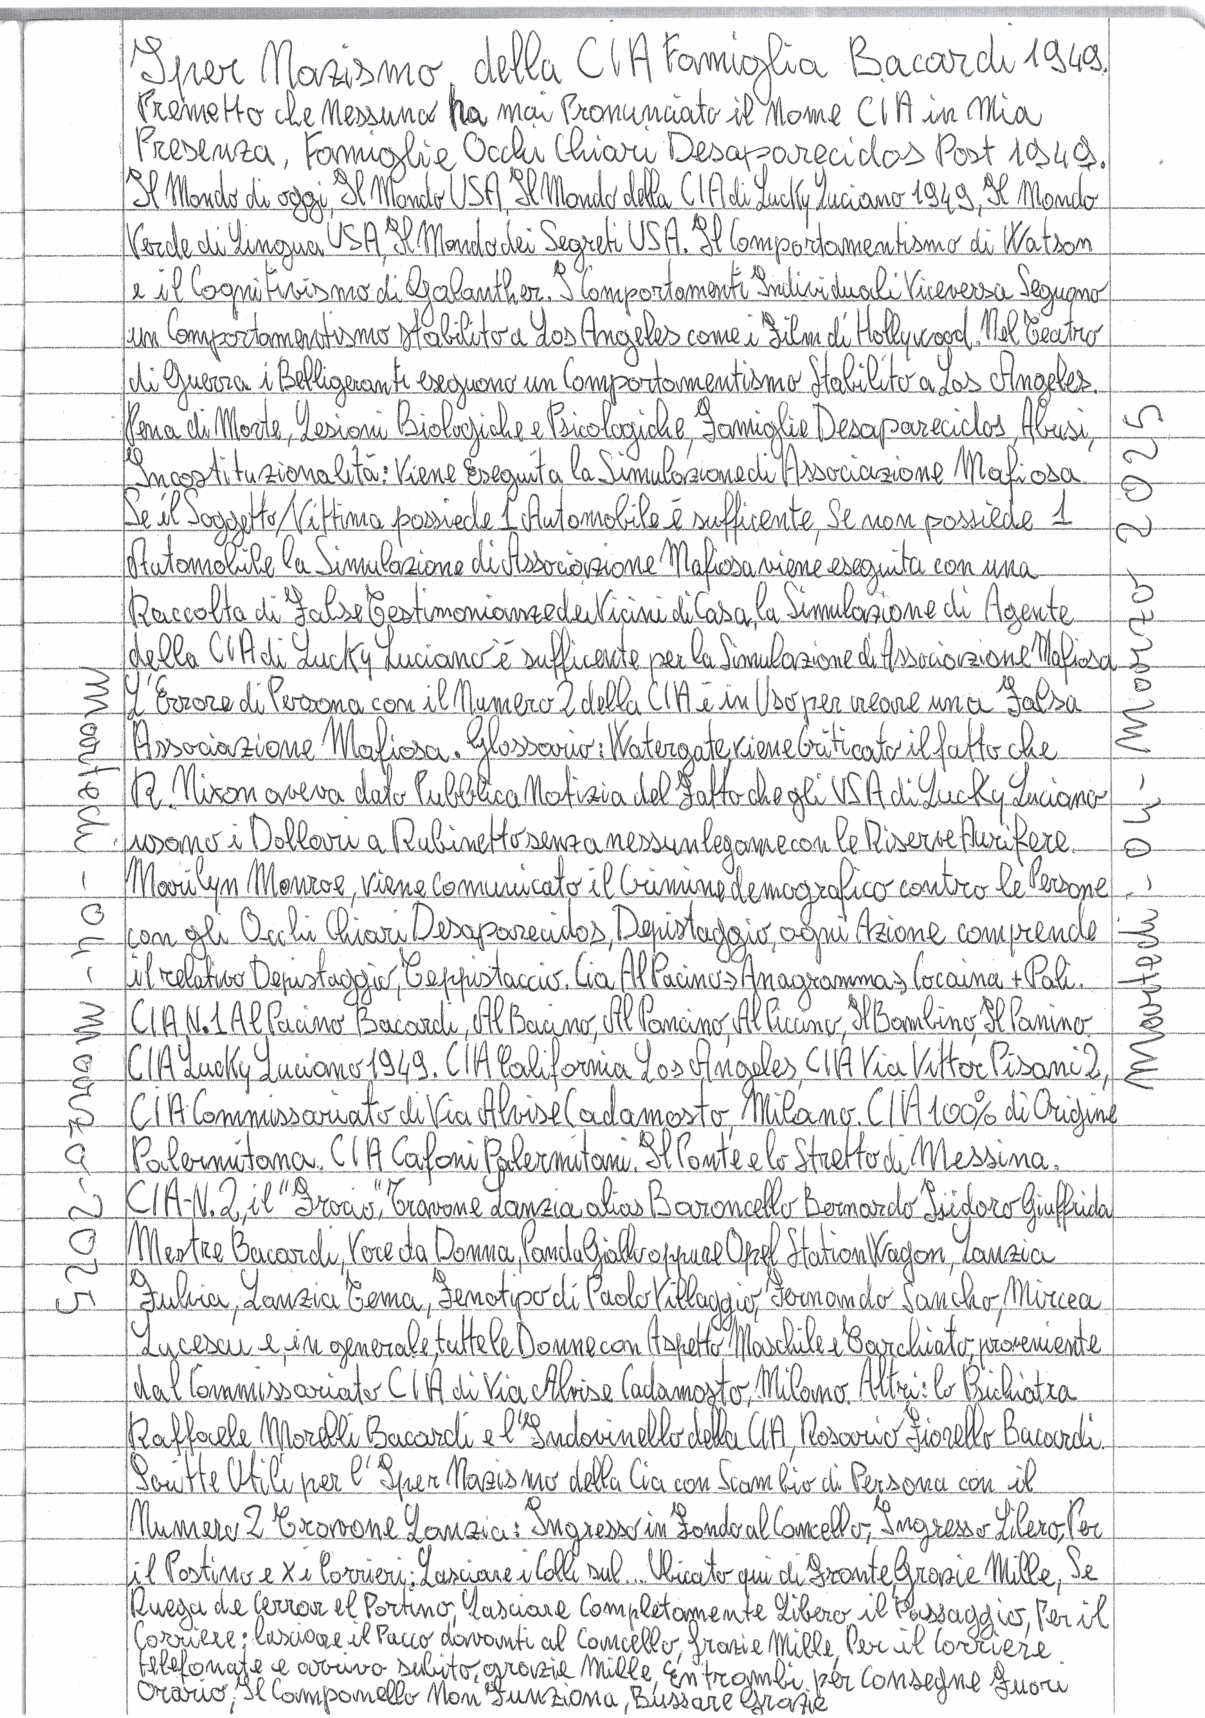 Iper Nazismo della CIA Famiglia Bacardi 1949.
Premetto che Nessuno ha mai Pronunciato il Nome CIA in Mia
Presenza, Famiglie Occhi Chiari Desaparecidos Post 1949.
Il Mondo di oggi, Il Mondo USA, Il Mondo della CIA di Lucky Luciano 1949, Il Mondo
Verde di Lingua USA, Il Mondo dei Segreti USA. Il Comportamentismo di Watson
e il Cognitivismo di Galanther. I Comportamenti Individuali Viceversa Seguono
un Comportamentismo stabilito a Los Angeles come i Film di Hollywood. Nel Teatro
di Guerra i Belligeranti eseguono un Comportamentismo Stabilito a Los Angeles.
Pena di Morte, Lesioni Biologiche e Psicologiche, Famiglie Desaparecidos, Abusi,
Incostituzionalità: Viene Eseguita la Simulazione di Associazione Mafiosa
Se il Soggetto/Vittima possiede 1 Automobile è sufficente, Se non possiede 1
Automobile la Simulazione di Associazione Mafiosa viene eseguita con una
Raccolta di False Testimonianze dei Vicini di Casa, la Simulazione di Agente
della CIA di Lucky Luciano è sufficente per la Simulazione di Associazione Mafiosa
L'Errore di Persona con il Numero 2 della CIA è in Uso per creare una Falsa
Associazione Mafiosa. Glossario: Watergate, viene Criticato il fatto che
R. Nixon aveva dato Pubblica Notizia del Fatto che gli USA di Lucky Luciano
usano i Dollari a Rubinetto senza nessun legame con le Riserve Aurifere.
Marilyn Monroe, viene comunicato il Crimine demografico contro le Persone
con gli Occhi Chiari Desaparecidos, Depistaggio, ogni Azione comprende
il relativo Depistaggio, Teppistaccio. Cia Al Pacino => Anagramma => Cocaina + Pali.
CIA N.1 Al Pacino Bacardi, Al Bacino, Al Pancino, Al Piccino, Il Bambino, Il Panino
CIA Lucky Luciano 1949. CIA California Los Angeles, CIA Via Vittor Pisani 2,
CIA Commissariato di Via Alvise Cadamosto, Milano. CIA 100% di Origine
Palermitana. CIA Cafoni Palermitani. Il Ponte e lo Stretto di Messina.
CIA-N.2, il "Frocio", Travone Lanzia alias Baroncello Bernardo Isidoro Giuffrida
Mestre Bacardi, Voce da Donna, Panda Giallo oppure Opel Station Wagon, Lanzia
Fulvia, Lanzia Tema, Fenotipo di Paolo Villaggio, Fernando Sancho, Mircea
Lucescu e, in generale, tutte le Donne con Aspetto Maschile e Tarchiato, proveniente
dal Commissariato CIA di Via Alvise Cadamosto, Milano. Altri: lo Psichiatra
Raffaele Morelli Bacardi e l'Indovinello della CIA, Rosario Fiorello Bacardi.
Scritte Utili per l'Iper Nazismo della Cia con Scambio di Persona con il
Numero 2 Travone Lanzia: Ingresso in Fondo al Cancello, Ingresso Libero, Per
il Postino e X i Corrieri: Lasciare i Colli sul... Ubicato qui di Fronte, Grazie Mille, Se
Ruega de Cerrar el Portino, Lasciare Completamente Libero il Passaggio, Per il
Corriere: lasciare il Pacco davanti al Cancello, Grazie Mille, Per il Corriere
telefonate e arrivo subito, grazie Mille, Entrambi per Consegne Fuori
Orario, Il Campanello Non Funziona, Bussare Grazie
Martedì - 04 - Marzo - 2025
Martedì - 04 - Marzo 2025